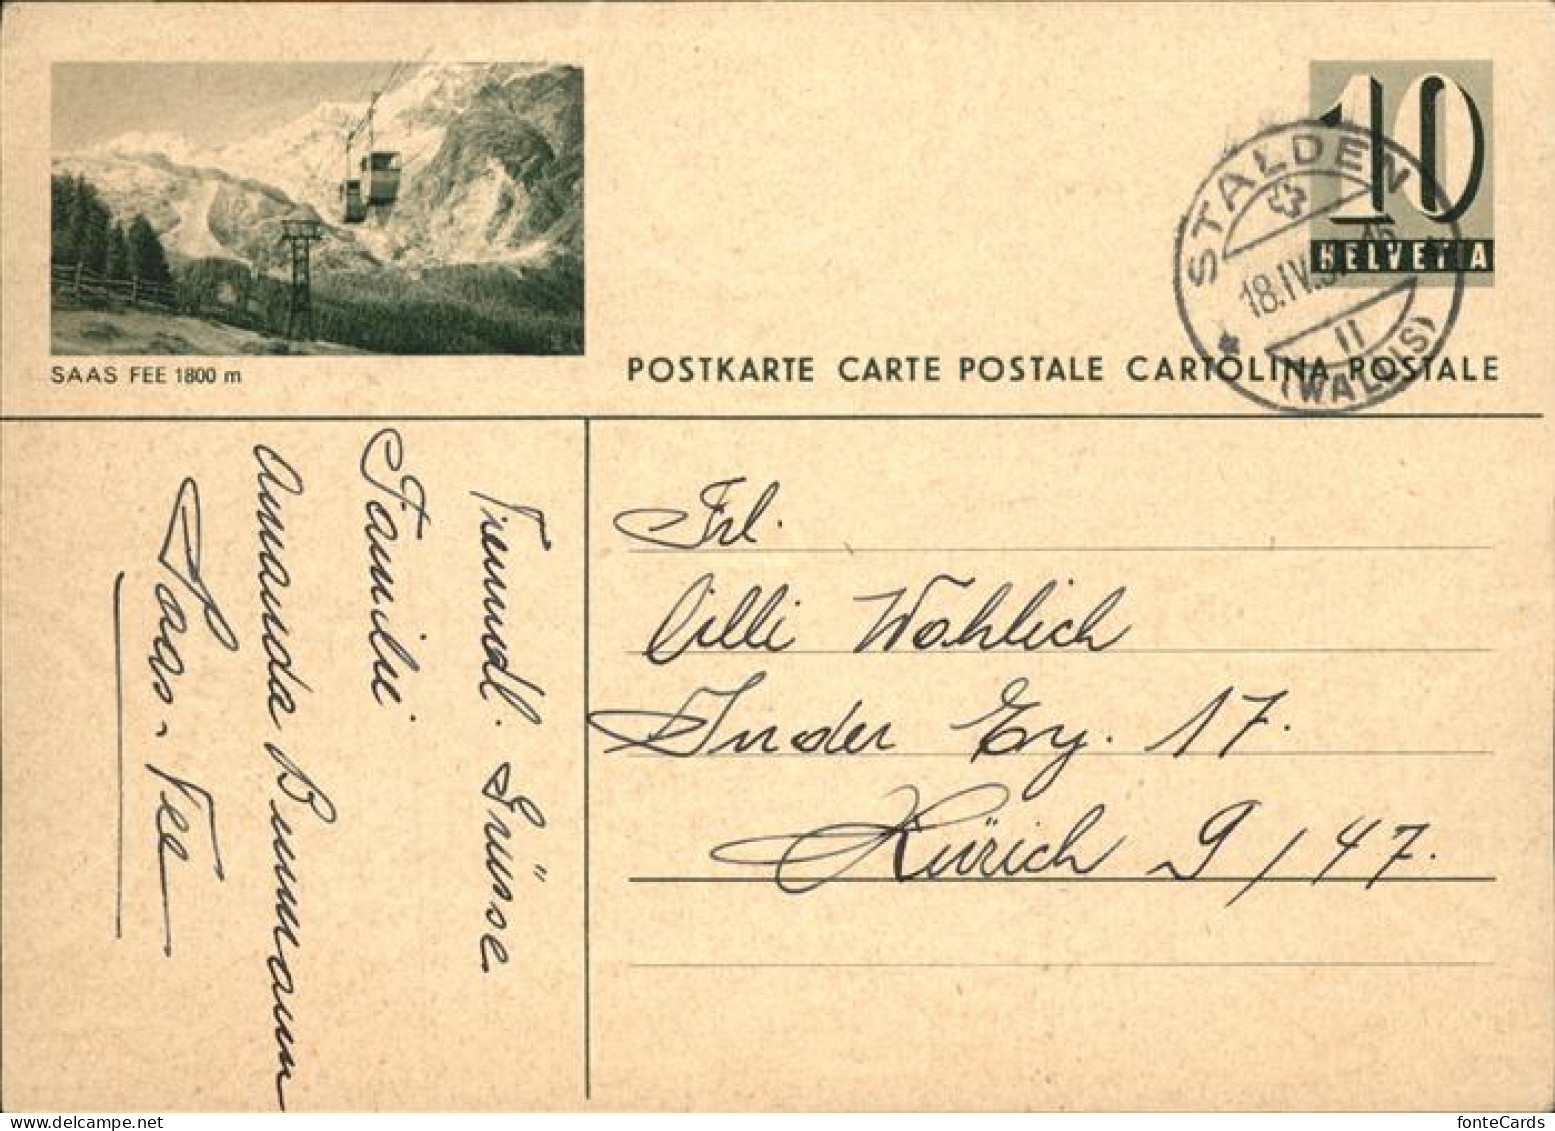 SAAS FEE 1800 m
10
HELVETIA
STALDEN
18.IV.
11
(WALLIS)
POSTKARTE CARTE POSTALE CARTOLINA POSTALE
Freundl. Grüsse
Familie
Amanda Bumann
Saas-Fee
Frl.
Cilli Wohlich
In der Ey. 17.
Zürich 9/47.
fonteCards